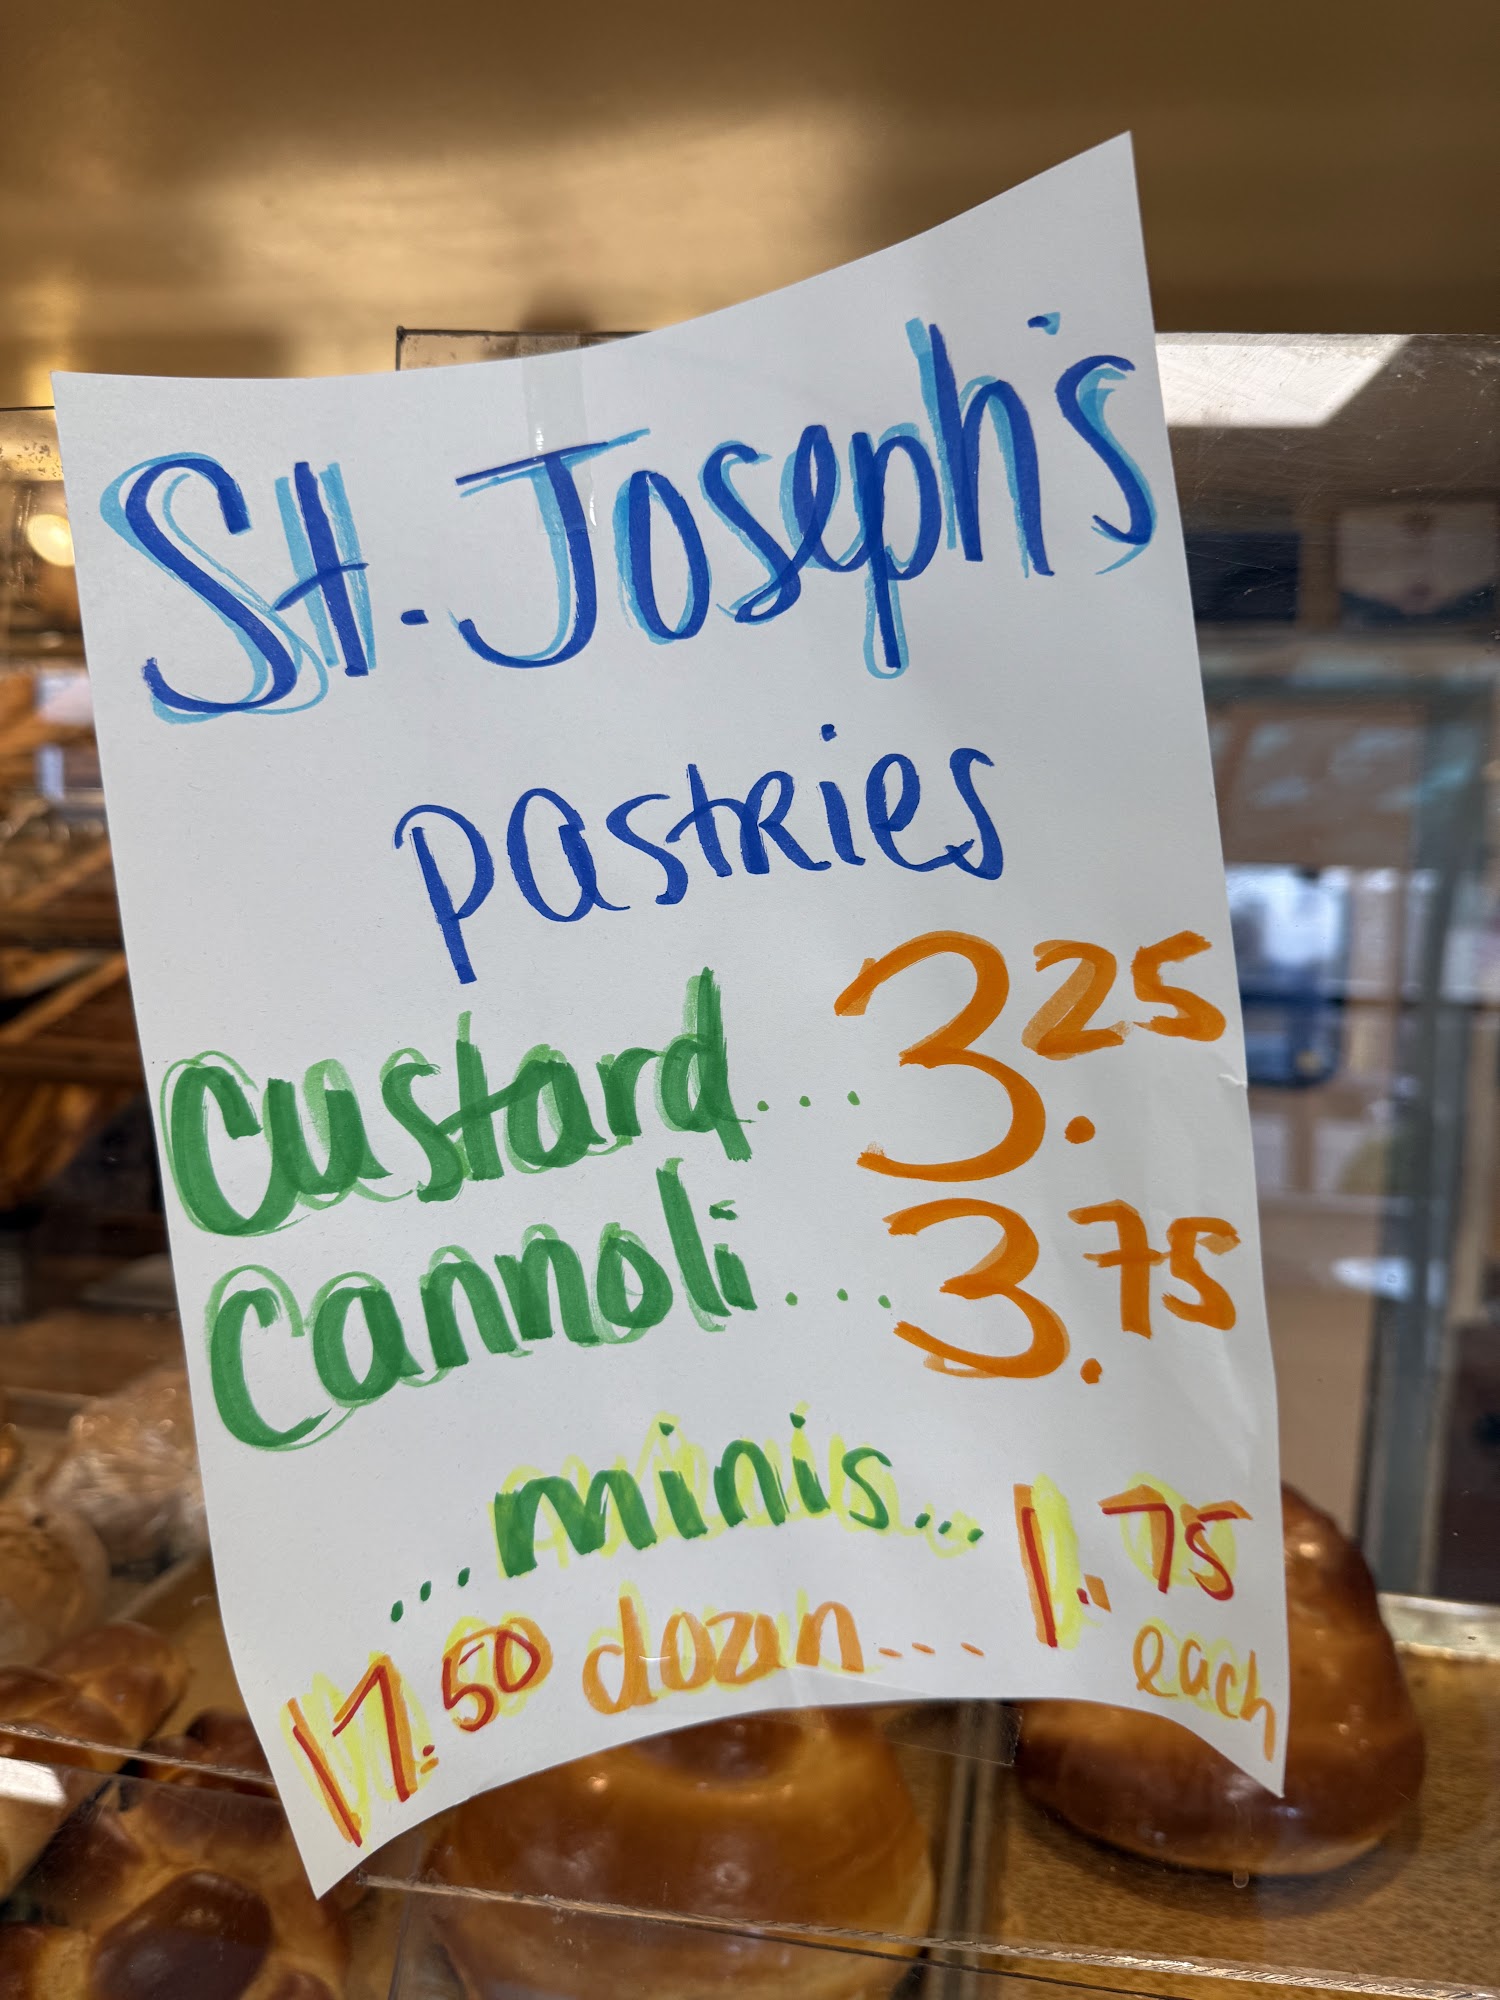 St. Joseph's
pastries
custard... 3.25
cannoli... 3.75
...minis... 1.75
17.50 dozen... each